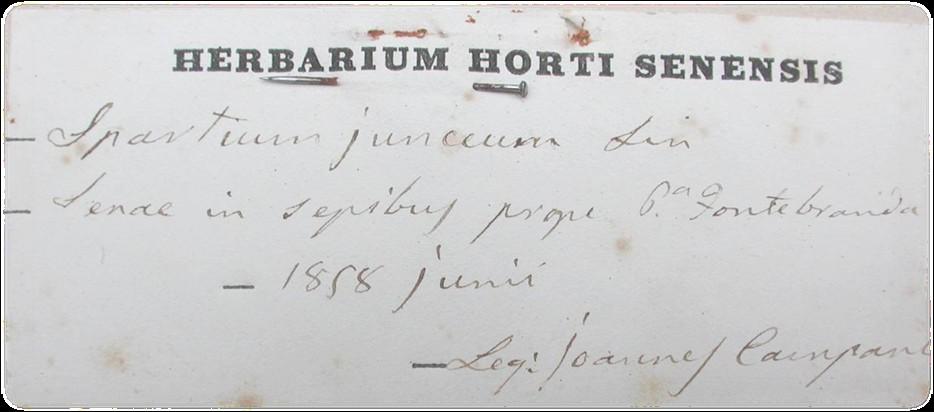 HERBARIUM HORTI SENENSIS
— Spartium junceum Lin
— Senae in sepibus prope P.ª Fontebranda
— 1858 junii
— Leg: Joannes Campani